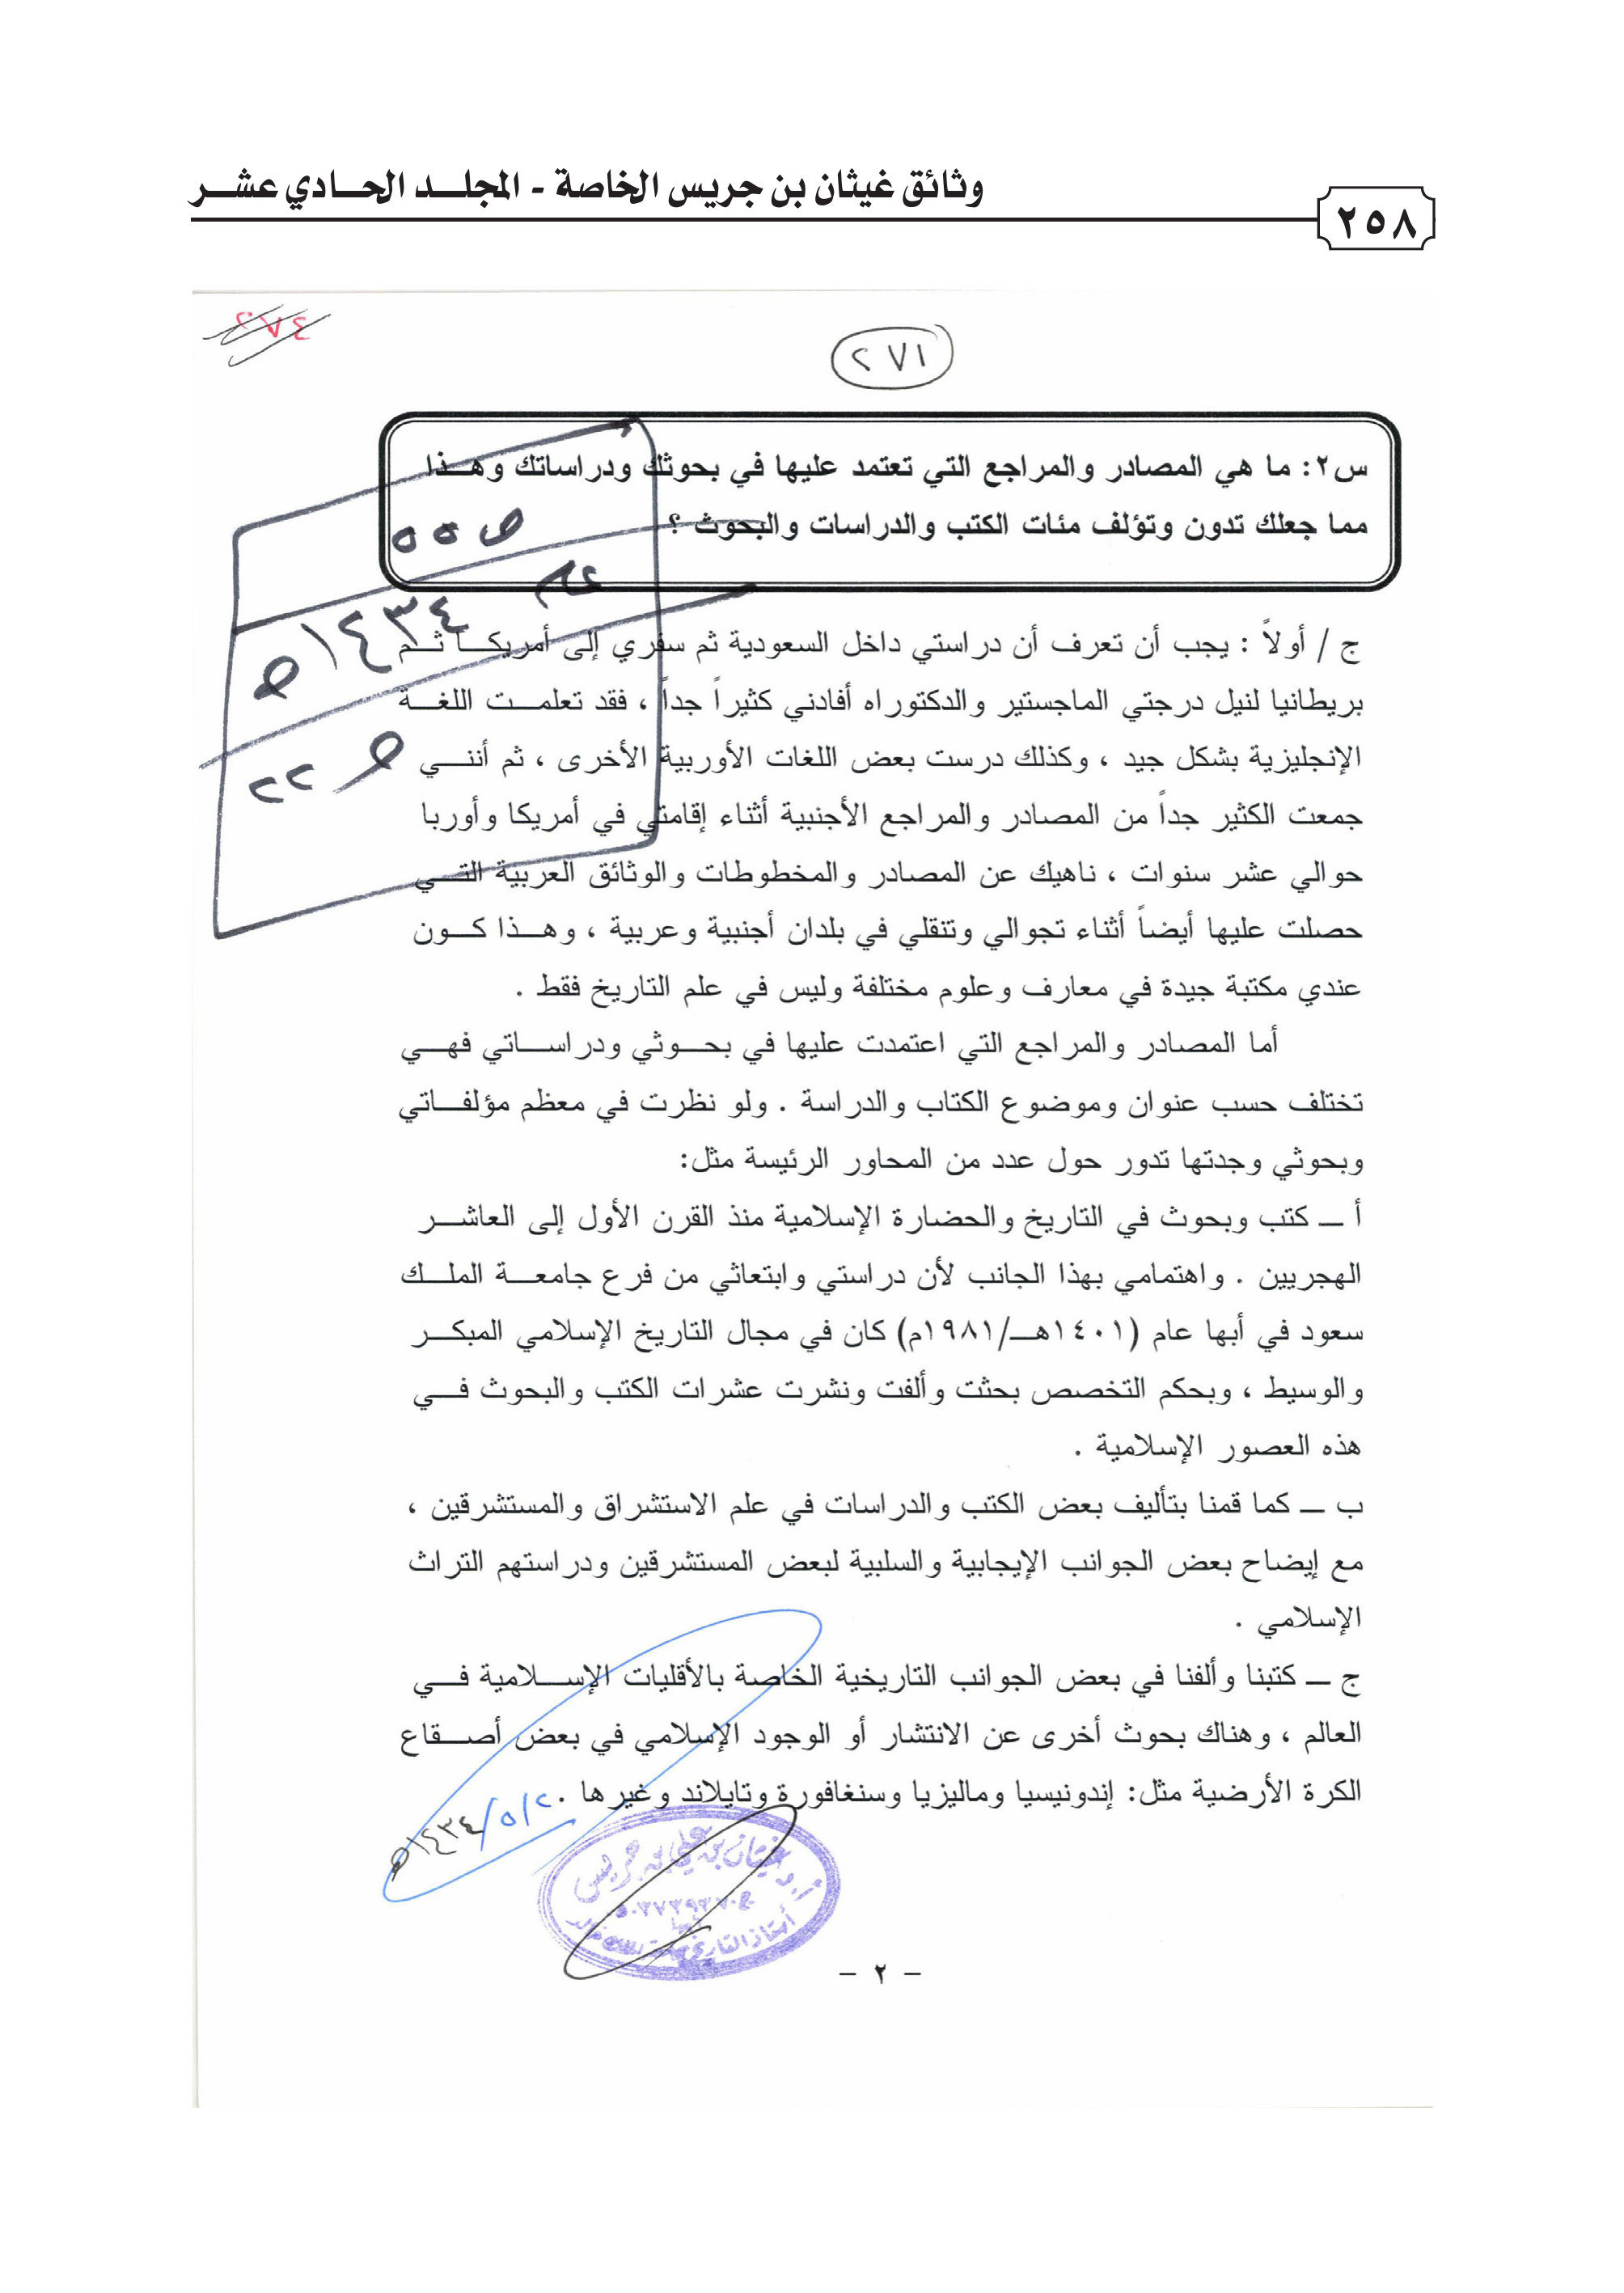 وثائق غيثان بن جريس الخاصة - المجلد الحادي عشر
٢٥٨
٢٧٤
٢٧١
س٢: ما هي المصادر والمراجع التي تعتمد عليها في بحوثك ودراساتك وهذا
مما جعلك تدون وتؤلف مئات الكتب والدراسات والبحوث ؟
ص ٥٥
عام
١٤٣٤هـ
ص ٢٢
ج / أولاً : يجب أن تعرف أن دراستي داخل السعودية ثم سفري إلى أمريكا ثم
بريطانيا لنيل درجتي الماجستير والدكتوراه أفادني كثيراً جداً ، فقد تعلمت اللغة
الإنجليزية بشكل جيد ، وكذلك درست بعض اللغات الأوربية الأخرى ، ثم أنني
جمعت الكثير جداً من المصادر والمراجع الأجنبية أثناء إقامتي في أمريكا وأوربا
حوالي عشر سنوات ، ناهيك عن المصادر والمخطوطات والوثائق العربية التي
حصلت عليها أيضاً أثناء تجوالي وتنقلي في بلدان أجنبية وعربية ، وهذا كون
عندي مكتبة جيدة في معارف وعلوم مختلفة وليس في علم التاريخ فقط .
أما المصادر والمراجع التي اعتمدت عليها في بحوثي ودراساتي فهي
تختلف حسب عنوان وموضوع الكتاب والدراسة . ولو نظرت في معظم مؤلفاتي
وبحوثي وجدتها تدور حول عدد من المحاور الرئيسة مثل:
أ ـ كتب وبحوث في التاريخ والحضارة الإسلامية منذ القرن الأول إلى العاشر
الهجريين . واهتمامي بهذا الجانب لأن دراستي وابتعاثي من فرع جامعة الملك
سعود في أبها عام (١٤٠١هـ/١٩٨١م) كان في مجال التاريخ الإسلامي المبكر
والوسيط ، وبحكم التخصص بحثت وألفت ونشرت عشرات الكتب والبحوث في
هذه العصور الإسلامية .
ب ـ كما قمنا بتأليف بعض الكتب والدراسات في علم الاستشراق والمستشرقين ،
مع إيضاح بعض الجوانب الإيجابية والسلبية لبعض المستشرقين ودراستهم التراث
الإسلامي .
ج ـ كتبنا وألفنا في بعض الجوانب التاريخية الخاصة بالأقليات الإسلامية في
العالم ، وهناك بحوث أخرى عن الانتشار أو الوجود الإسلامي في بعض أصقاع
الكرة الأرضية مثل: إندونيسيا وماليزيا وسنغافورة وتايلاند وغيرها .
٢/٥/١٤٣٤هـ
أ.د. غيثان بن علي بن جريس
أستاذ التاريخ
- ٢ -